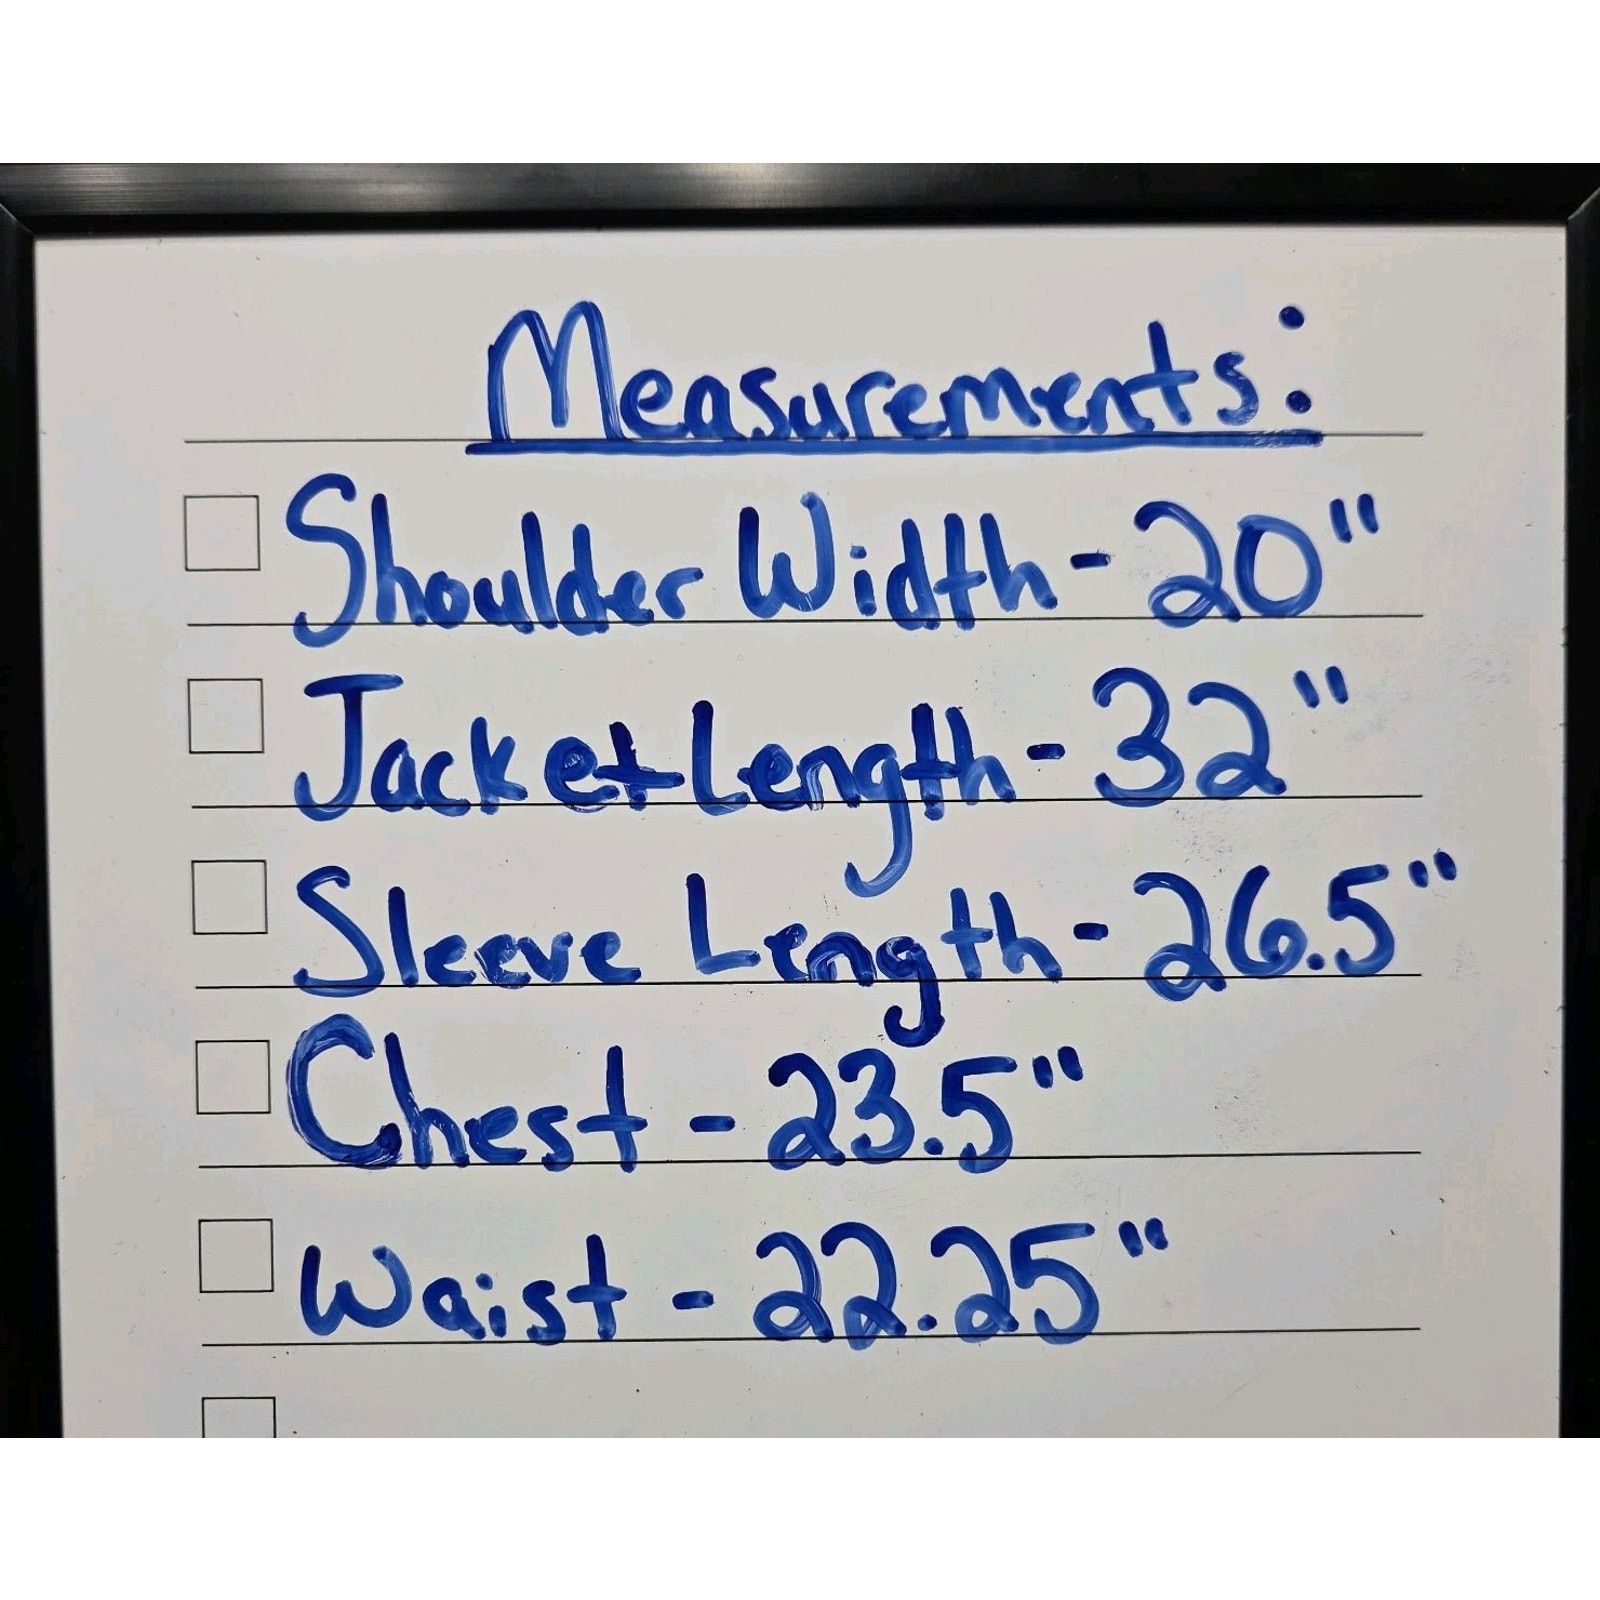 Measurements:
Shoulder Width - 20"
Jacket Length - 32"
Sleeve Length - 26.5"
Chest - 23.5"
Waist - 22.25"